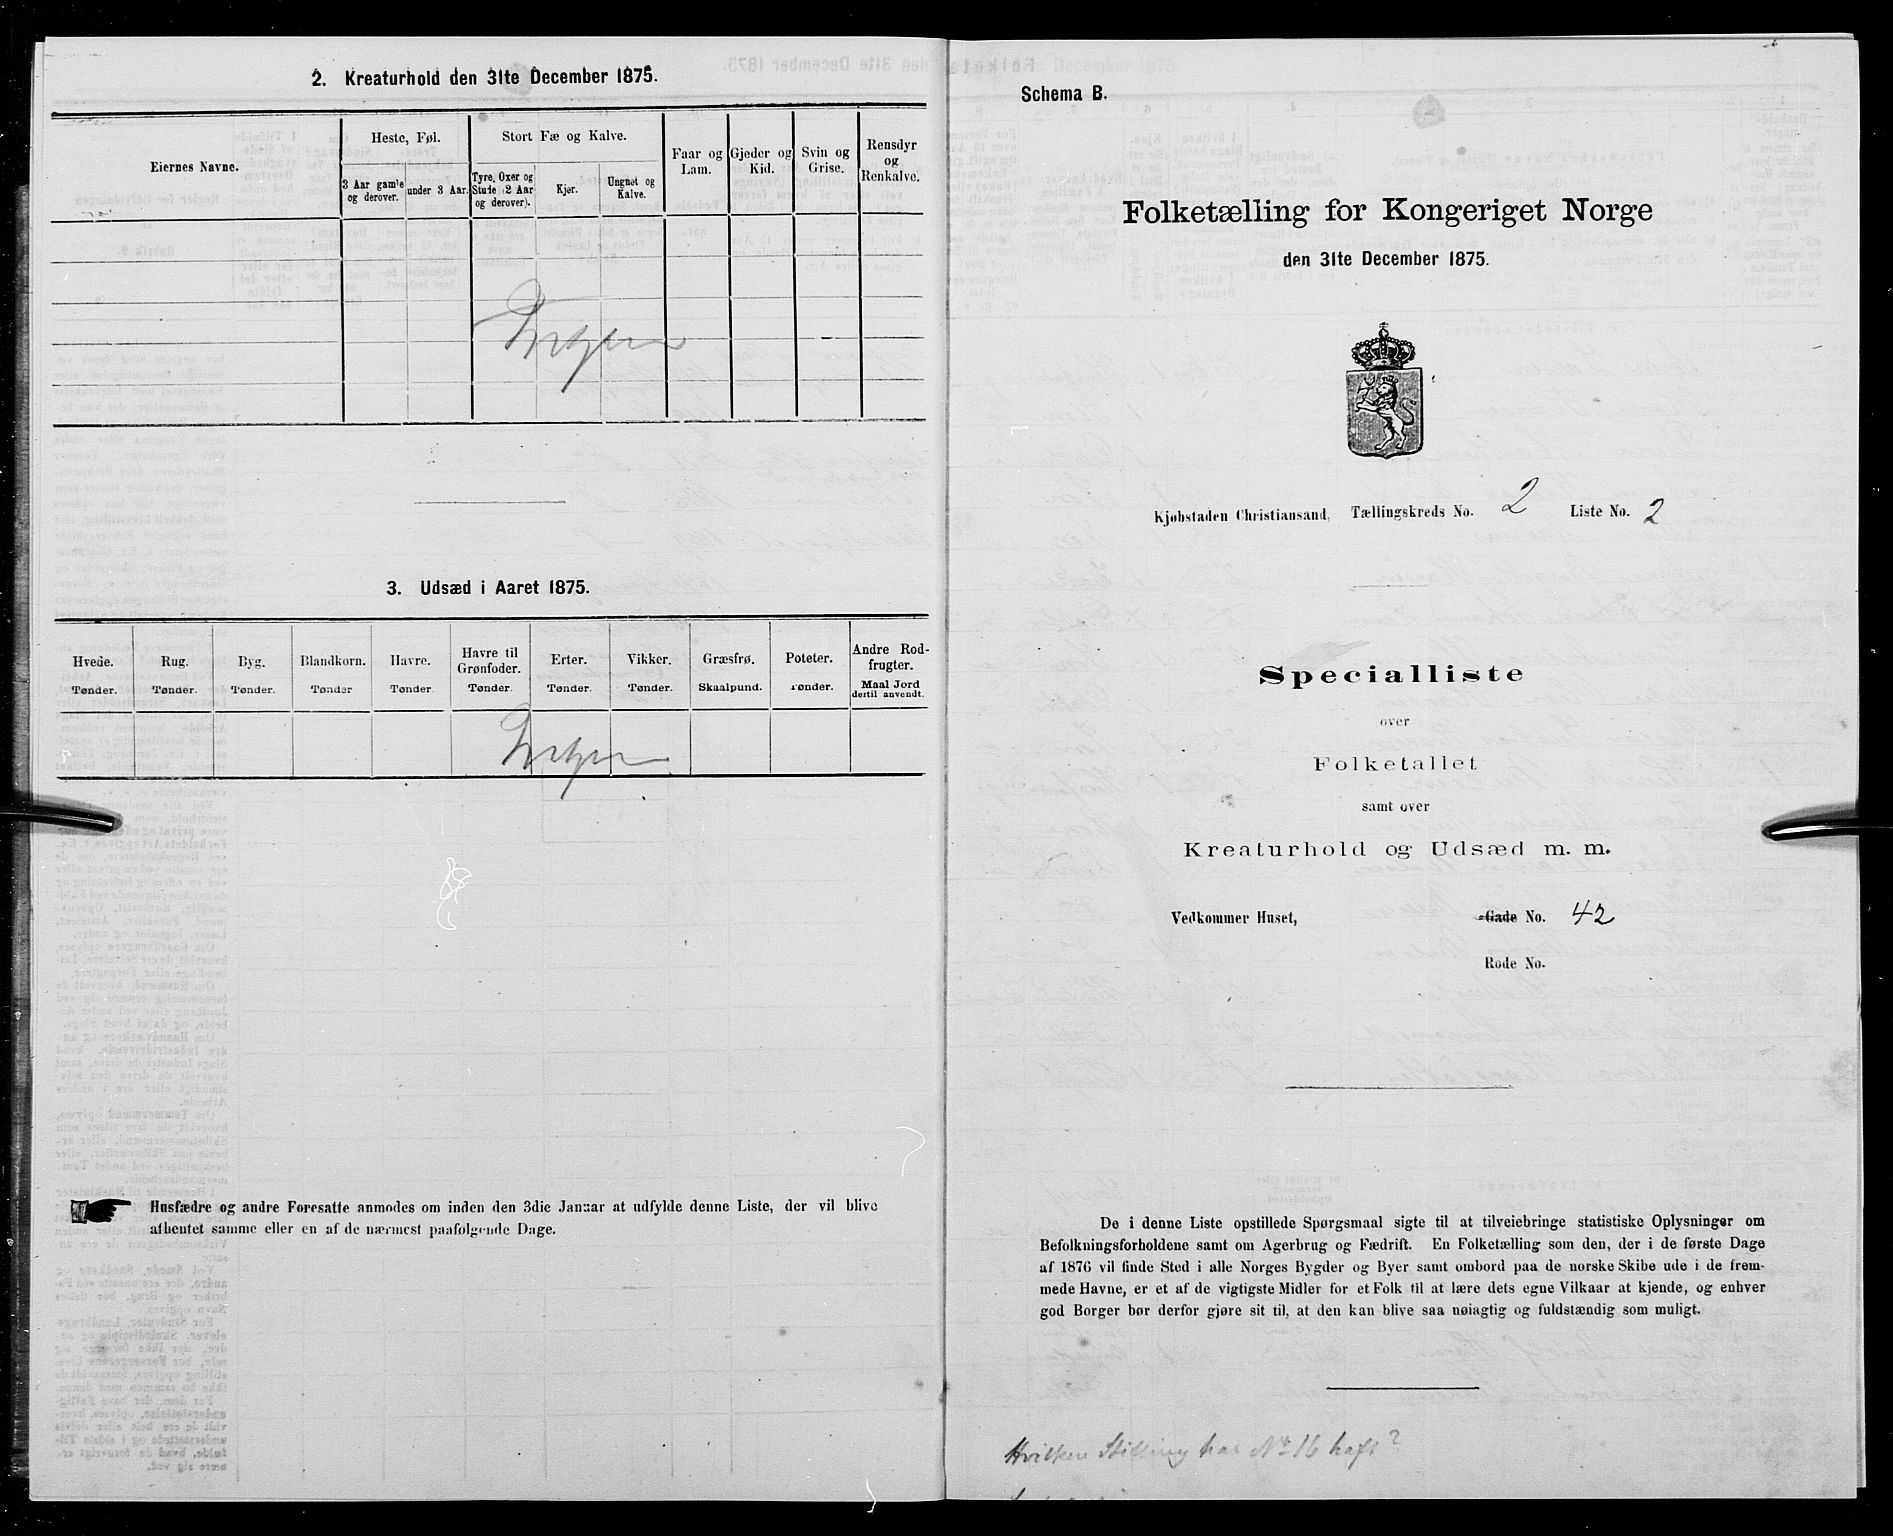 2. Kreaturhold den 31te December 1875.
Eiernes Navne.
Heste, Føl.
3 Aar gamle og derover.
under 3 Aar.
Stort Fæ og Kalve.
Tyre, Oxer og Stude (2 Aar og derover).
Kjør.
Ungnet og Kalve.
Faar og Lam.
Gjeder og Kid.
Svin og Grise.
Rensdyr og Renkalve.
Ingen
3. Udsæd i Aaret 1875.
Hvede. Rug. Byg. Blandkorn. Havre. Havre til Grønfoder. Erter. Vikker. Græsfrø. Poteter. Andre Rodfrugter.
Tønder. Tønder. Tønder. Tønder Tønder. Tønder. Tønder. Tønder. Skaalpund. Tønder. Maal Jord dertil anvendt.
Ingen
Husfædre og andre Foresatte anmodes om inden den 3die Januar at udfylde denne Liste, der vil blive
afhentet samme eller en af de nærmest paafølgende Dage.
Schema B.
Folketælling for Kongeriget Norge
den 31te December 1875.
Kjøbstaden Christiansand, Tællingskreds No. 2 Liste No. 2
Specialliste
over
Folketallet
samt over
Kreaturhold og Udsæd m. m.
Vedkommer Huset, Gade No. 42
Rode No.
De i denne Liste opstillede Spørgsmaal sigte til at tilveiebringe statistiske Oplysninger om
Befolkningsforholdene samt om Agerbrug og Fædrift. En Folketælling som den, der i de første Dage
af 1876 vil finde Sted i alle Norges Bygder og Byer samt ombord paa de norske Skibe ude i de frem-
mede Havne, er et af de vigtigste Midler for et Folk til at lære dets egne Vilkaar at kjende, og enhver
god Borger bør derfor gjøre sit til, at den kan blive saa nøiagtig og fuldstændig som muligt.
Hvilken Stilling har No 16 haft?